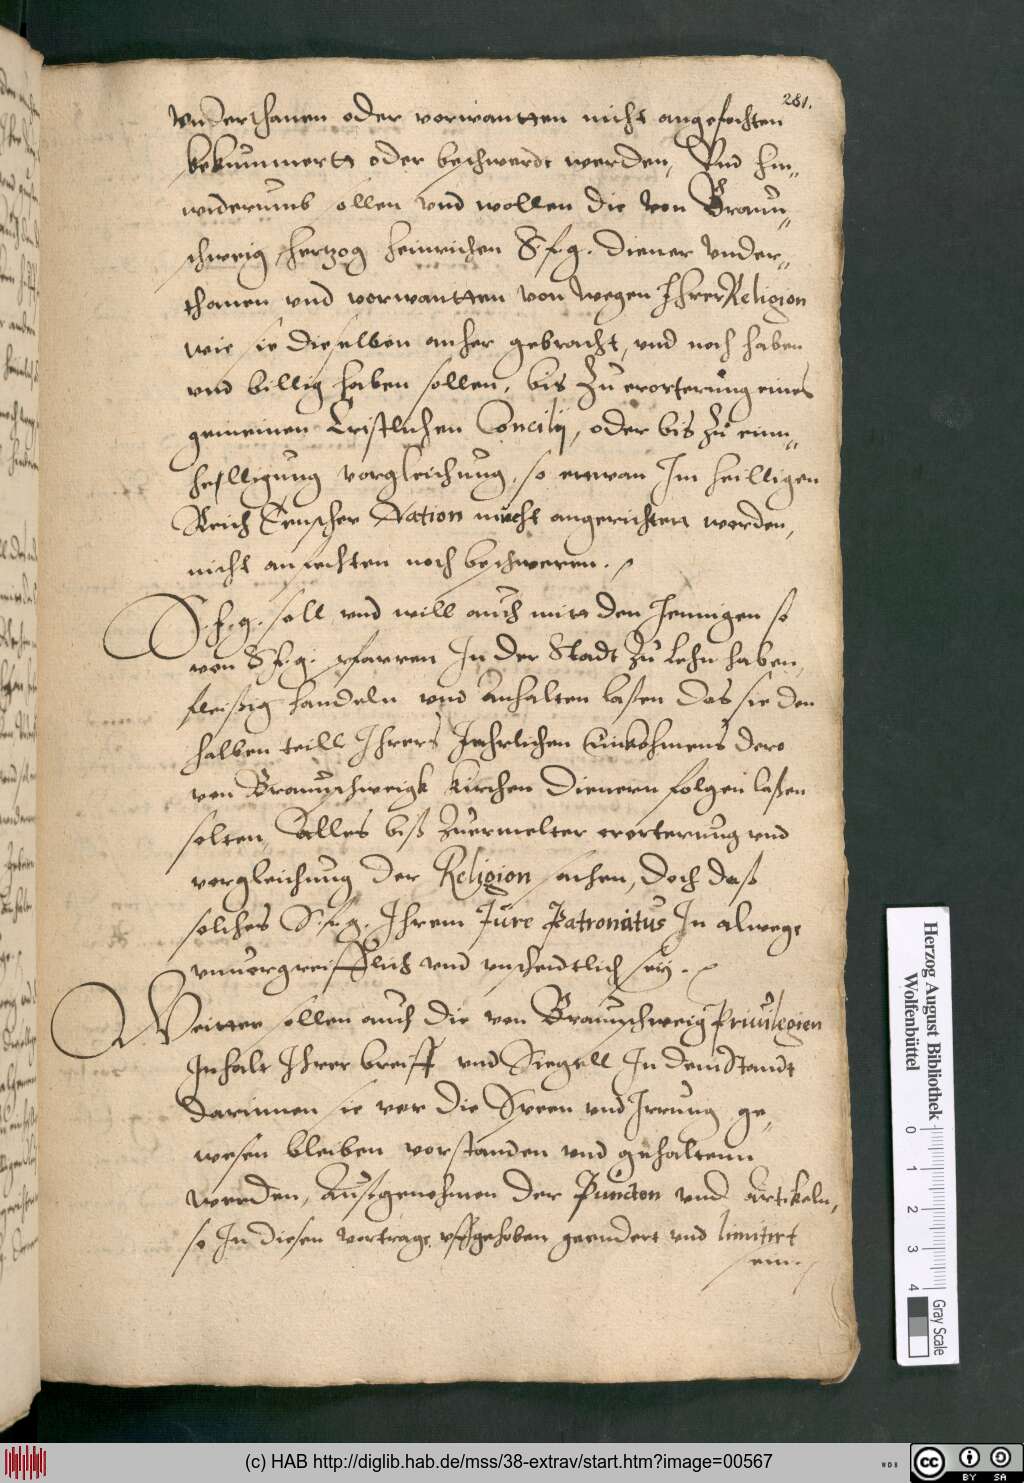 281.
vnderthanen oder vorwantten nicht angefochten
bekummertt oder beschwerdt werden, Vnd hin„
widerumb ollen vnd wollen die von Braun„
schweig hertzog Heinrichen S. f. g. diener vnder„
thanen vnd vorwantten von wegen Ihrer Religion
wie sie dieselben anher gebracht, vnd noch haben
vnd billig haben sollen, bis zu erorterung eines
gemeinen Cristlichen Concilij, oder bis zu einn„
helligung vorgleichung, so ettwan Im heilligen
Reich Teutscher Nation mücht angerichtett werden,
nicht anfechten noch beschweren.
S. f. g. soll vnd will auch mitt den Jennigen so
von S. f. g. pfarren In der Stadt zu Lehn haben,
fleißig handeln vnd Anhalten laßen das sie den
halben teill Ihrers Jehrlichen Einkohmens dero
von Braunschweigk Kirchen Dienern folgen laßen
solten, Alles biß zuermelter erorterung vnd
vorgleichung der Religion sachen, Doch daß
solches S. f. g. Ihrem Jure Patronatus In alwege
vnuorgreifflich vnd vnschedtlich seij.
Weitter sollen auch die von Braunschweig Priuilegien
Inhalt Ihrer breiff vnd Siegell In dem Standt
darinnen sie vor die Speen vnd Irrung ge„
wesen bleiben vorstanden vnd gehaltenn
werden, Außgenohmen der Puncten vnd Artikeln,
so In diesen vortrage vffgehoben geendert vnd limitirt
sein.
Herzog August Bibliothek
Wolfenbüttel
0 1 2 3 4
Gray Scale
(c) HAB http://diglib.hab.de/mss/38-extrav/start.htm?image=00567
WDB
cc BY SA